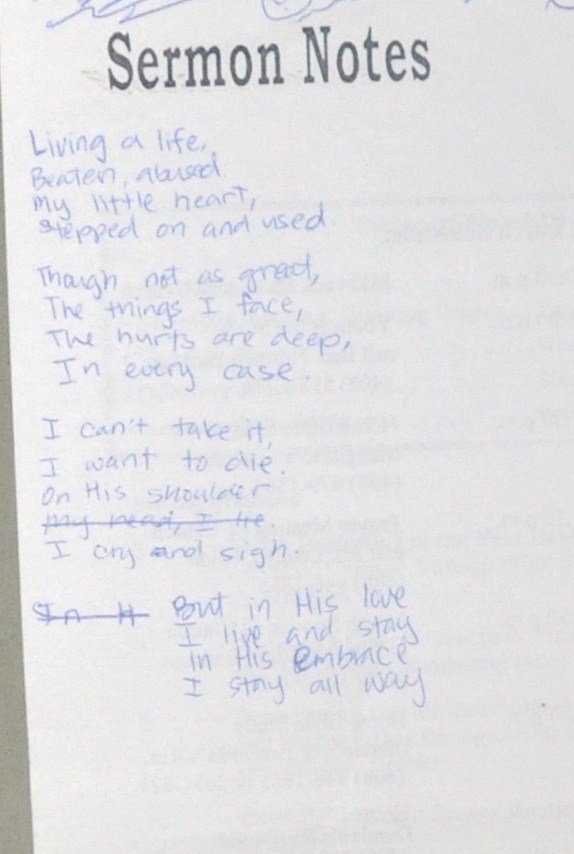 Sermon Notes
Living a life,
Beaten, abused.
My little heart,
stepped on and used
Though not as great,
The things I face,
The hurts are deep,
In every case.
I can't take it,
I want to die.
On His shoulder
my head, I lie
I cry and sigh.
In H But in His love
I live and stay
in His Embrace
I stay all way